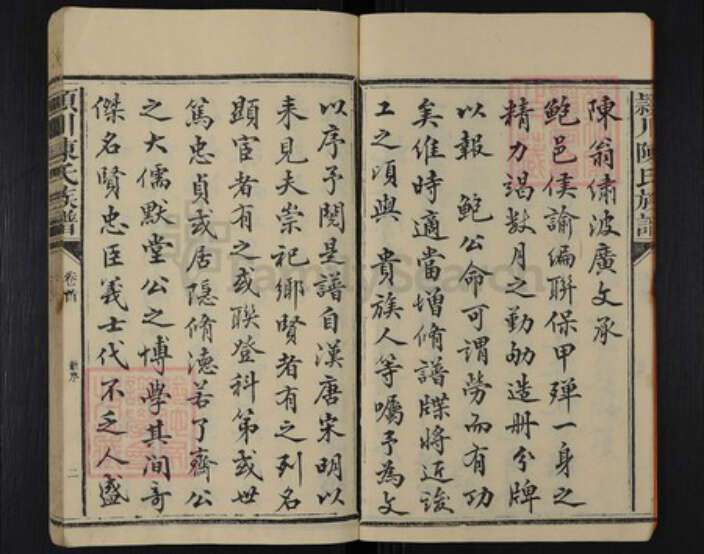 潁川陳氏族譜
陳翁儒波廣文承
鮑邑侯諭編聯保甲殫一身之
精力竭數月之勤劬造册分牌
以報 鮑公命可謂勞而有功
矣維時適當增脩譜牒將近竣
工之頃與 貴族人等囑予為文
以序予閱是譜自漢唐宋明以
来見夫崇祀鄉賢者有之列名
顕宦者有之或聯登科第或世
篤忠貞或居隐脩德若了齋公
之大儒默堂公之博學其间奇
傑名賢忠臣義士代不乏人盛
潁川陳氏族譜
卷首
二
FamilySearch